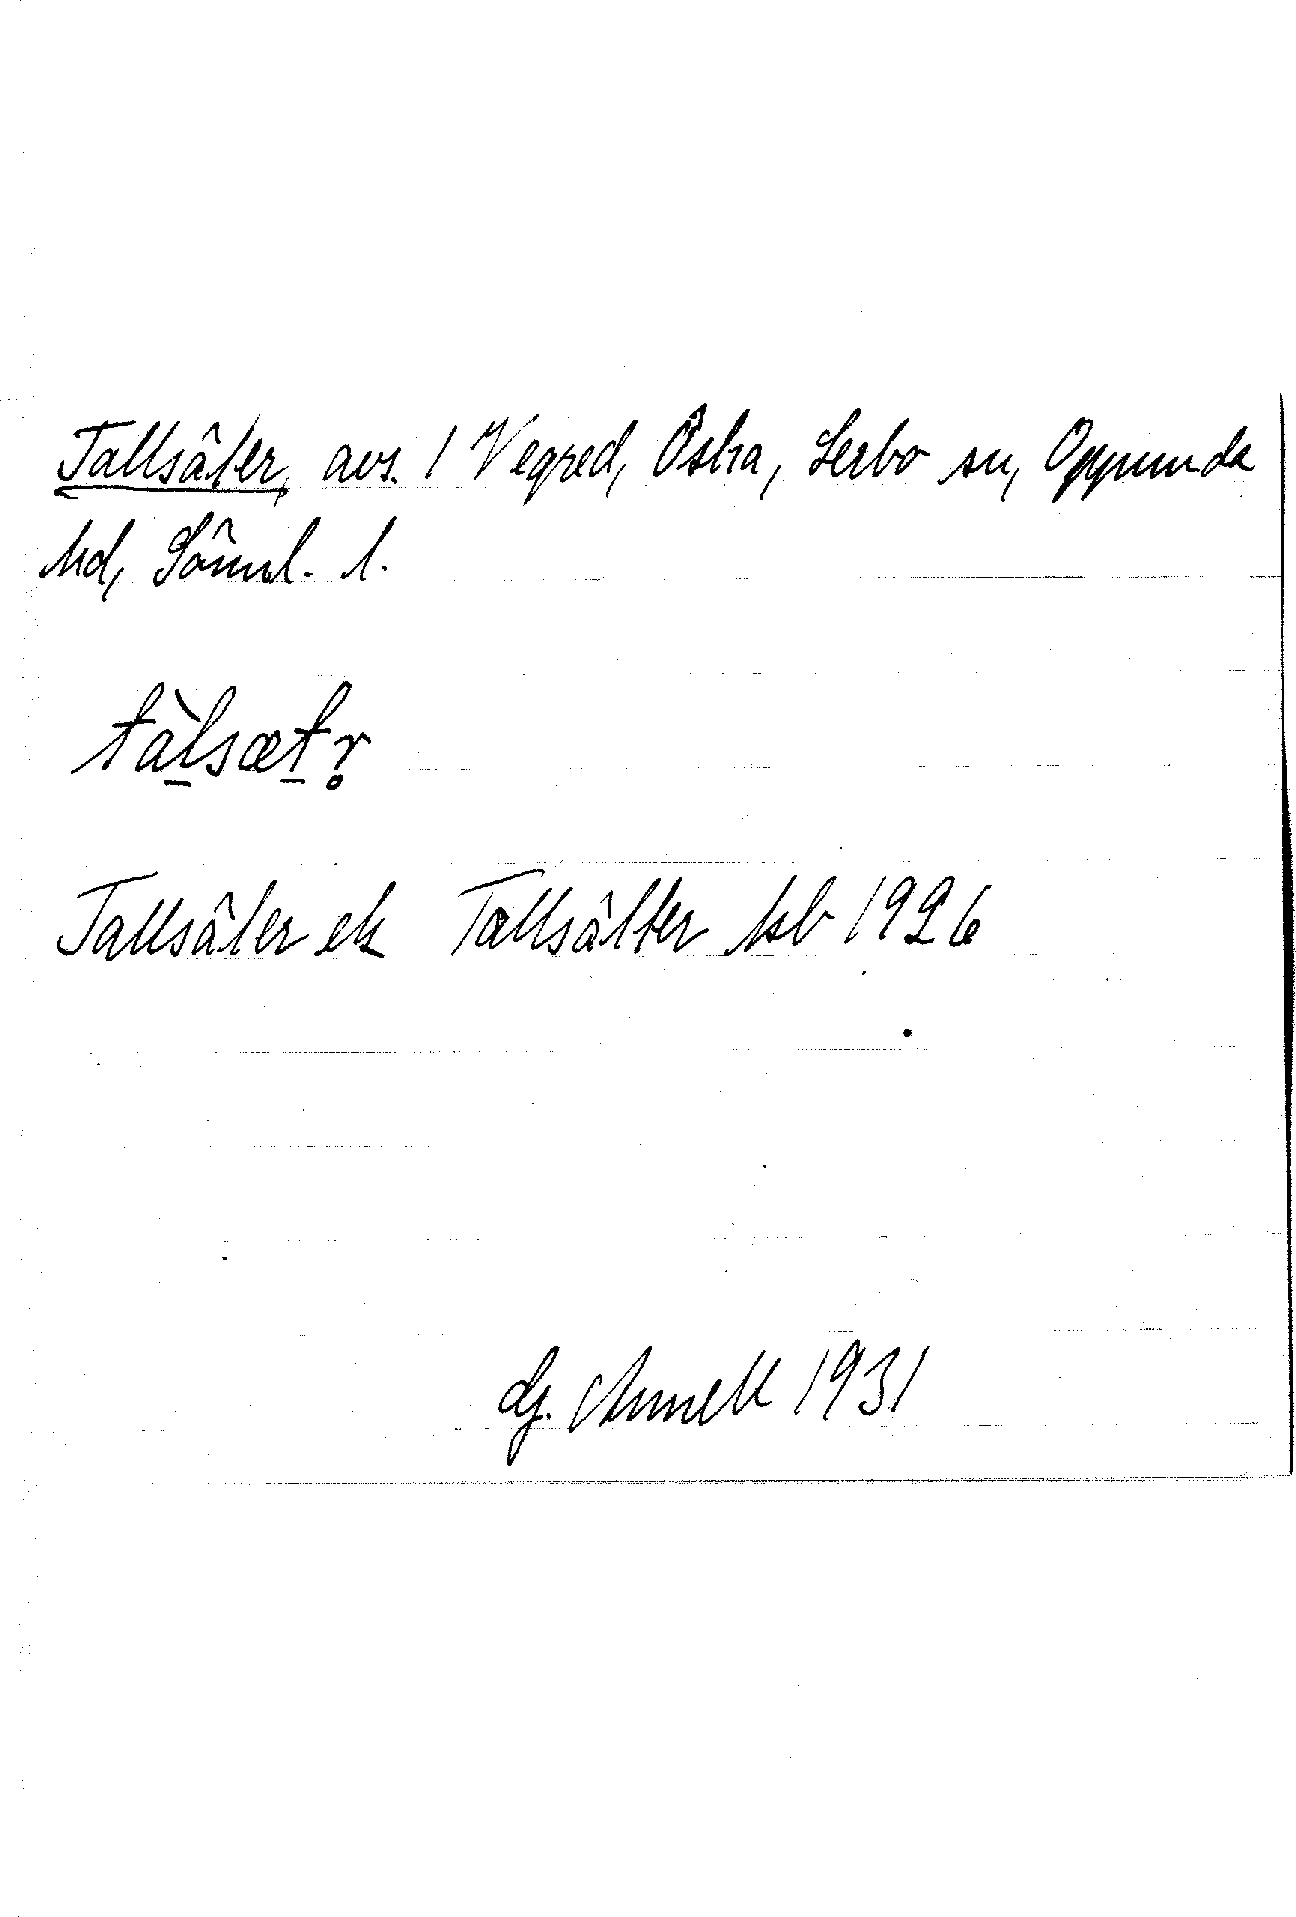 Tallsäter, avs. / Vegred, Östra, Lerbo sn, Oppunda
hd, Sörml. l.
tàl̠sæt̠r̥
Tallsäter ek Tallsätter kb 1926
Hj. Annell 1931